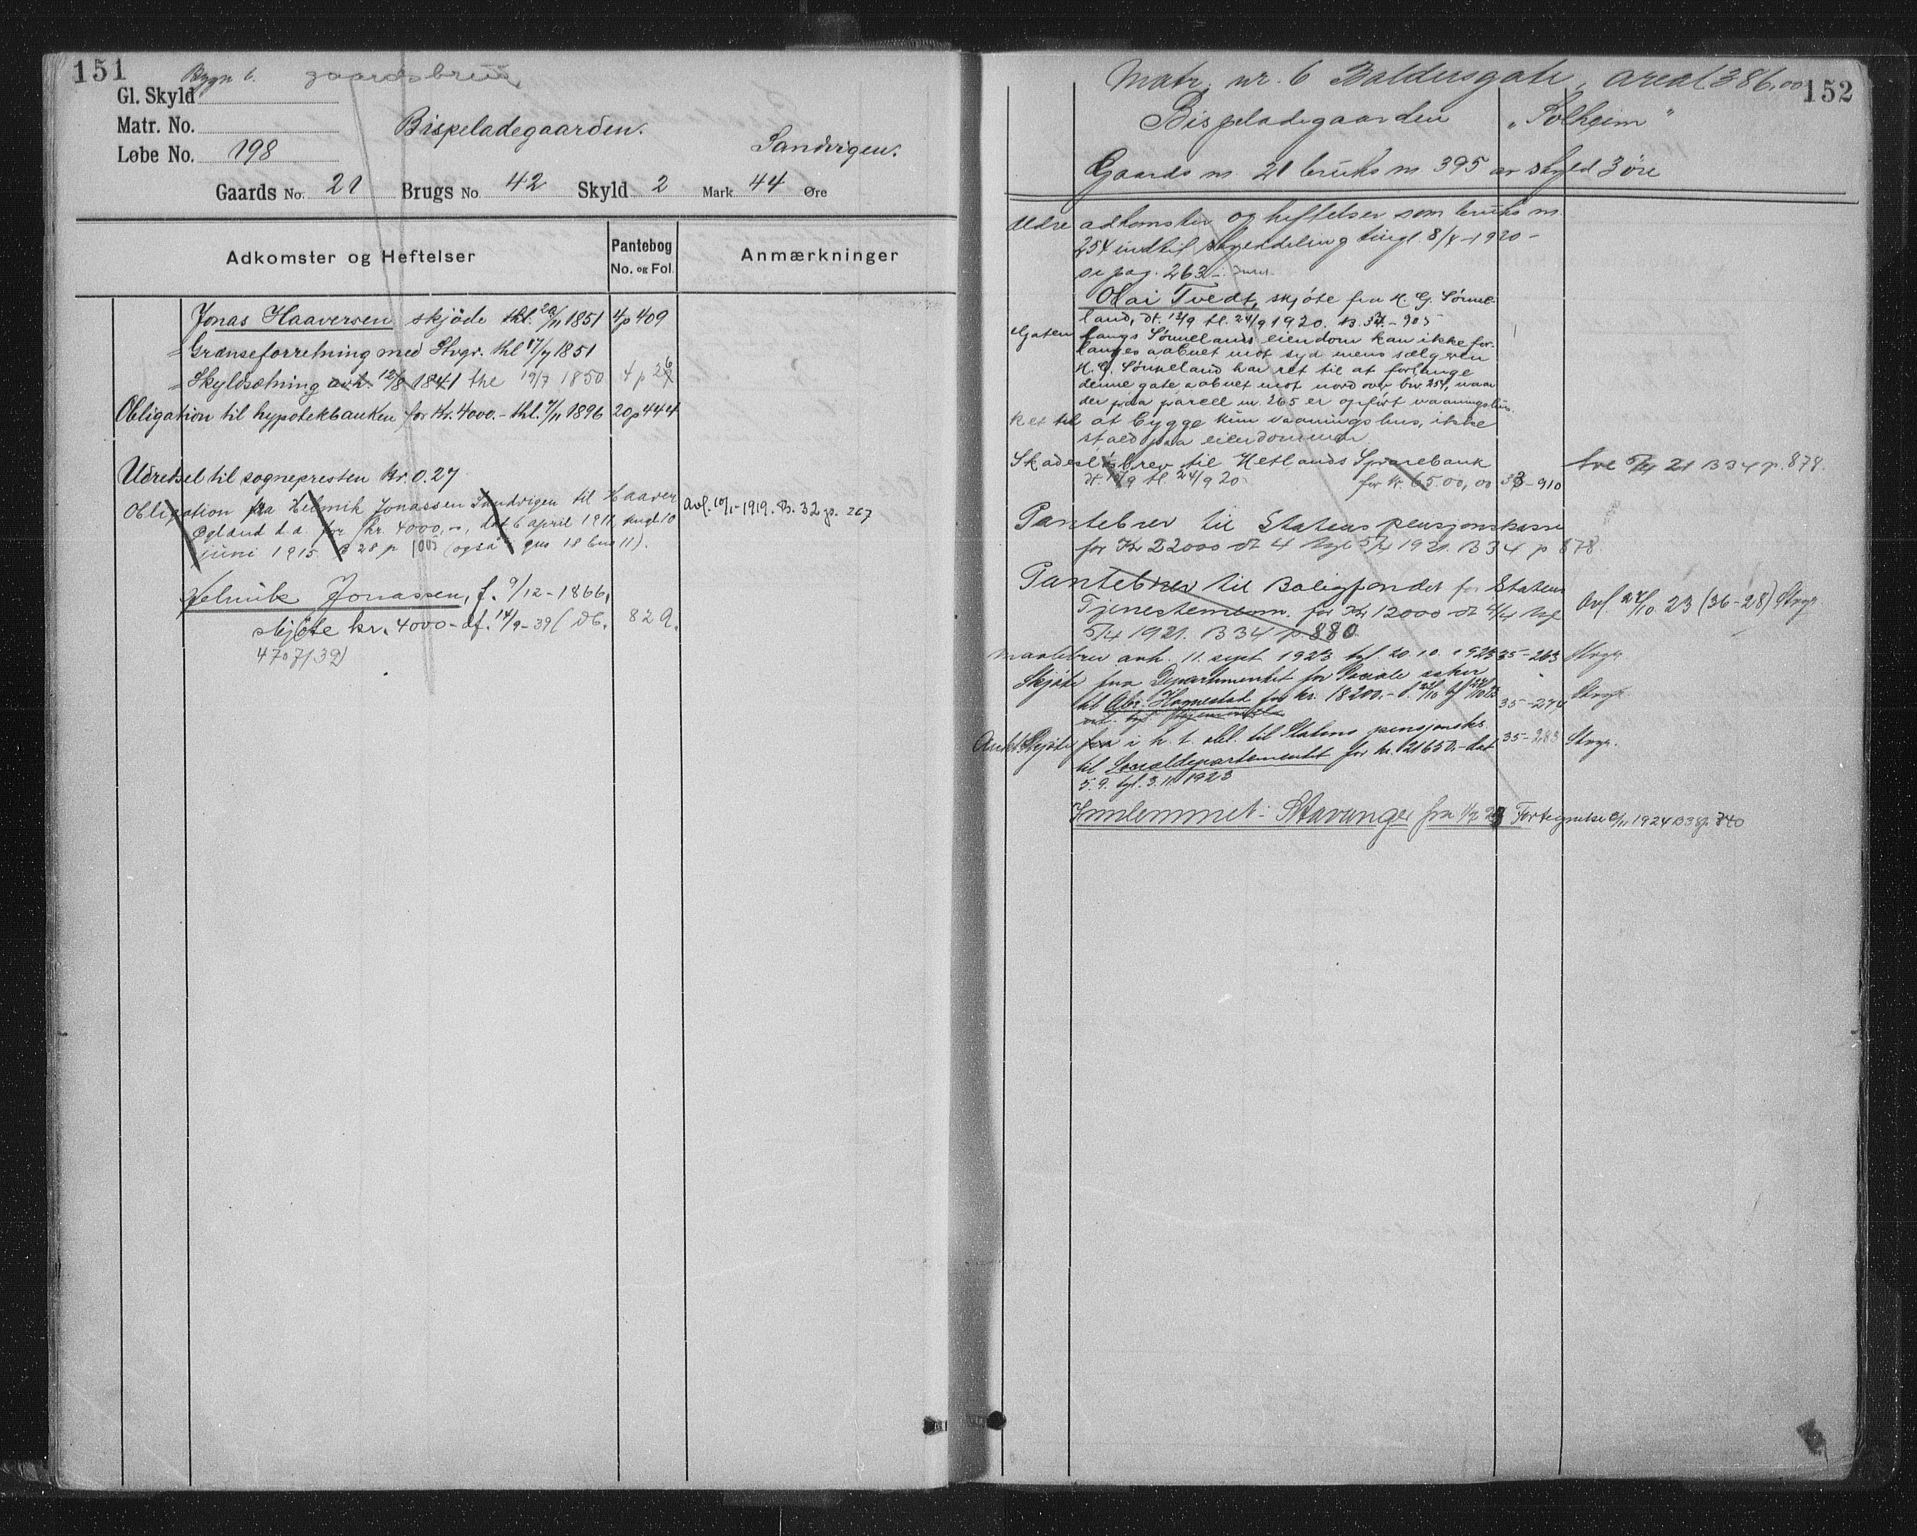 151
Bygn 6. gaardsbruk
Gl. Skyld
Matr. No.
Løbe No. 198
Bispeladegaarden.
Sandvigen.
Gaards No. 21 Brugs No. 42 Skyld 2 Mark 44 Øre
Adkomster og Heftelser
Pantebog
No. og Fol.
Anmærkninger
Jonas Haaversen skjøde thl. 20/11 1851 4p 409
" Grænseforretning med Stvgr. thl 17/7 1851
" Skyldsætning avh. 12/8 1841 thl 19/7 1850 4 p 26
Obligation til hypotekbanken for Kr. 4000.- thl. 7/11 1896 20p444
Udredsel til sognepresten kr. 0.27
Obligation fra Helmik Jonassen Sandvigen til Haaver
Øgland d.a. for kr. 4000,-, dat 6 april 1911, tingl. 10
juni 1915. B 28 p 1005 (også gns 18 bns 11).
Avl. 10/1-1919. B. 32 p. 267
Helmik Jonassen, f. 9/12-1866,
skjøte kr. 4000 - df. 14/9-39 (Db. 829.
4707/39)
152
Matr. nr. 6 Baldersgate, areal 386,00
Bispeladegaarden "Solheim"
Gaards nr. 21 bruks nr 395 av skyld 3 øre
Ældre adkomster og heftelser som bruks nr.
254 indtil skyeddeling tingl. 8/4-1920 -
se pag. 263 -
Olai Tvedt, skjøte fra H. G. Sønne-
land, dt. 13/9 tl. 24/9 1920. B. 33. - 905
Gaten langs Sønnelands eiendom kan ikke for-
langes aabnet mot syd mens sælgeren
H. G. Sønneland har ret til at forlange
denne gate aabnet mot nord over bnr 254, naar
der paa parcell nr. 265 er opført vaaningshus.
Ret til at bygge kun vaaningshus, ikke
stald paa eiendommen
Skadesl.brev til Hetlands Sparebank
dt 17/9 tl. 24/9 20 for kr 6500,00 33-910
Ave 5/4 21 B34 p. 878.
Pantebrev til Statens pensjonskasse
for Kr 22000 dt 4 tgl 5/4 1921. B 34 p 878.
Pantebrev til Boligfondet for Statens
Tjenestemenn for Kr 12000 dt 4/4 tgl
5/4 1921. B34 p 880
Avl. 24/10. 23 (36-28) Stvgr
Maalebrev avh. 11. sept 1923 tgl. 20.10.1923 35-263 Stvgr.
Skjøte fra Departementet for Sociale saker
til Abr. Hognestad for kr. 18200.- 35-274 Stvgr
Aukt. Skjøte fra i h. t. obl. til Statens pensjonsks. 35-283 Stvgr.
til Socialdepartementet for kr. 21650.- dat
5.9. tgl. 3.11.1923
Innlemmet i Stavanger fra 1/7 23 Fortegnelse 1924 B 38 p. 340